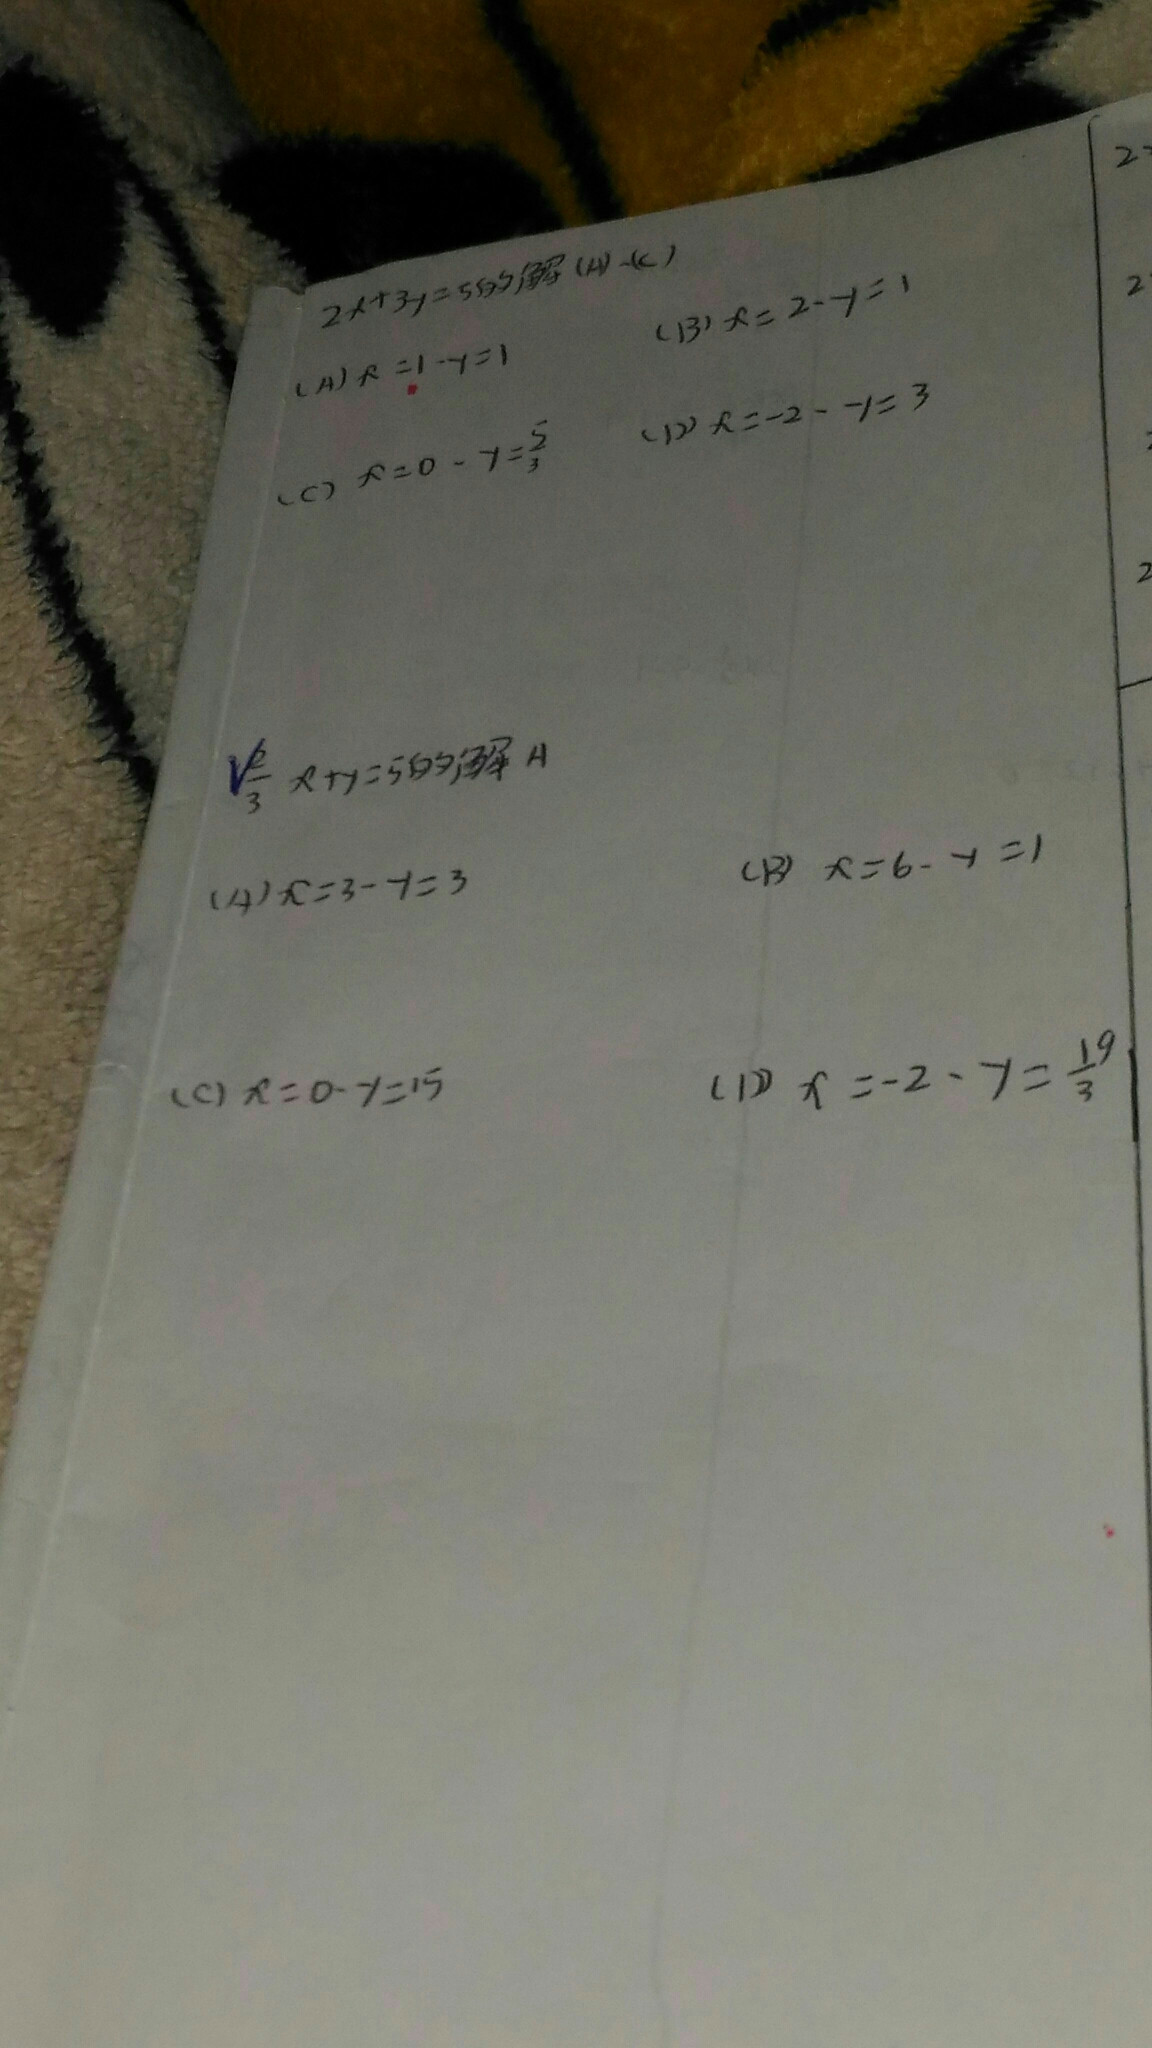 2x+3y=5的解(A)-(C)
(A) x=1-y=1
(B) x=2-y=1
(C) x=0-y=5/3
(D) x=-2-y=3
2/3 x+y=5的解 A
(A) x=3-y=3
(B) x=6-y=1
(C) x=0-y=15
(D) x=-2-y=19/3
2
2
2